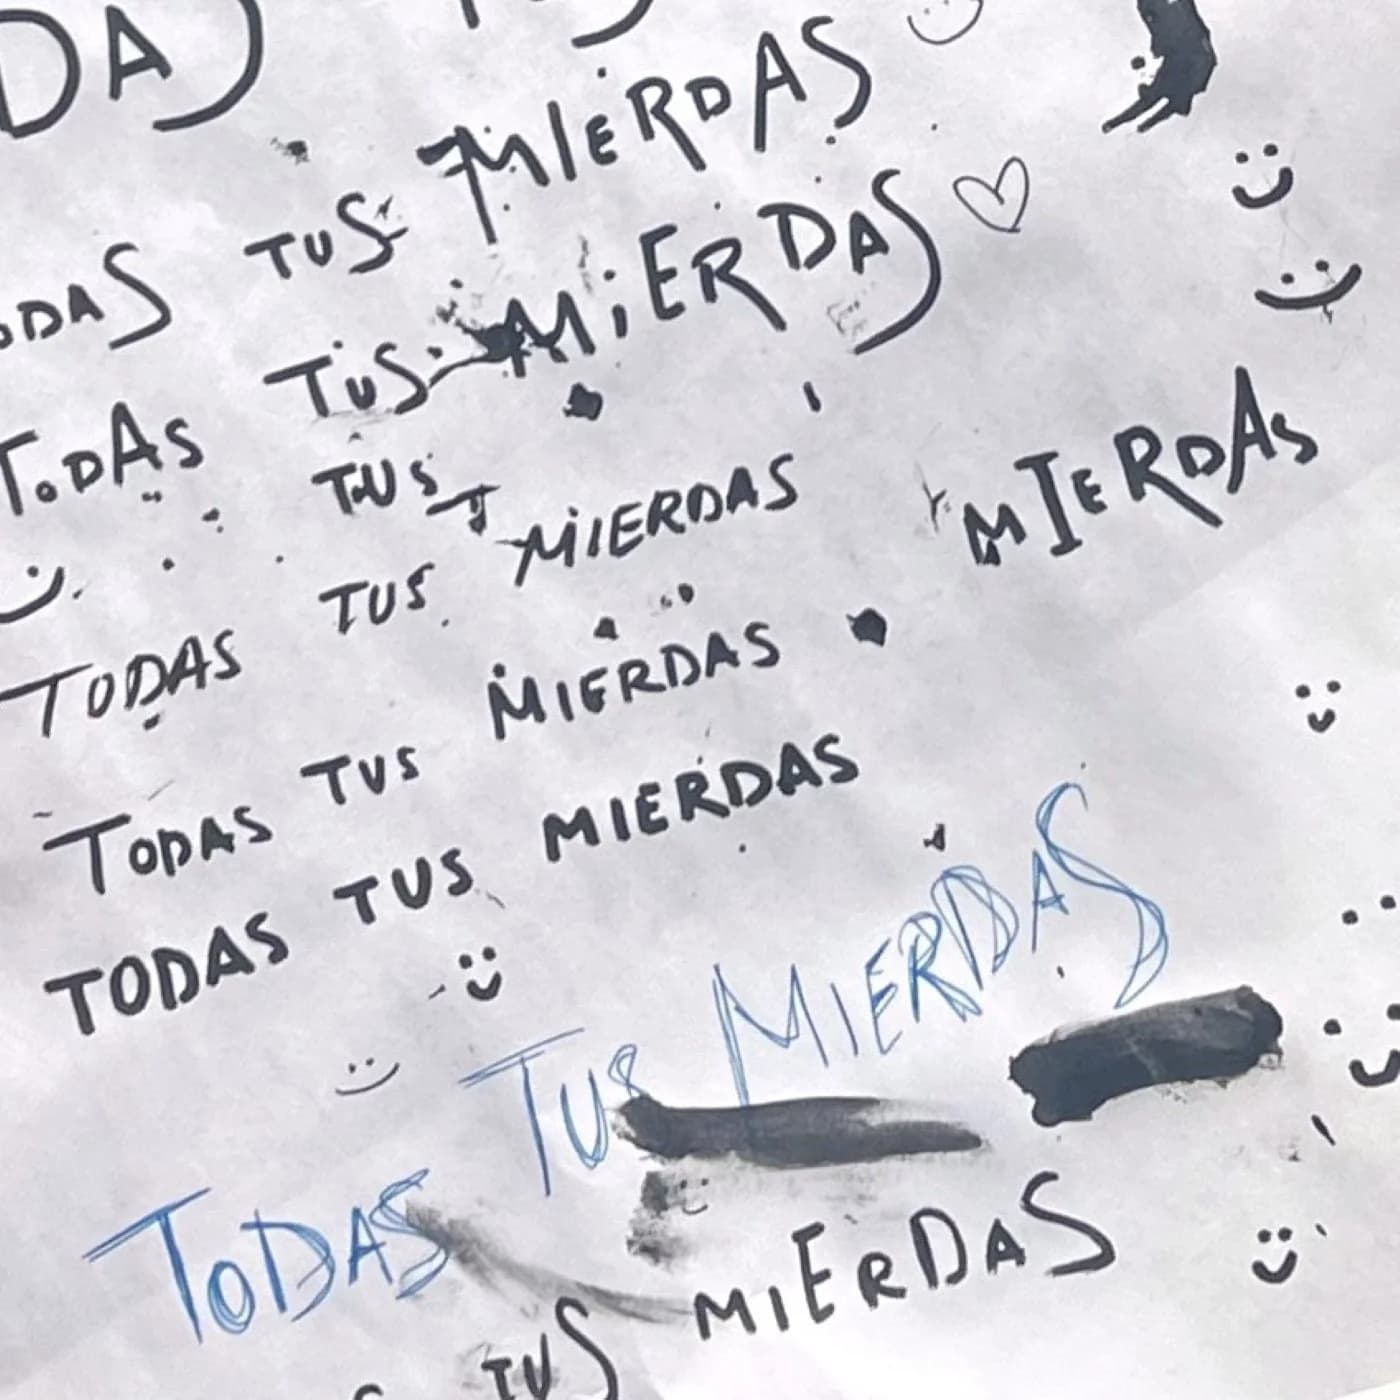 DAS
ODAS TUS MIERDAS
TODAS TUS MIERDAS
TUS MIERDAS
TODAS TUS MIERDAS
TODAS TUS MIERDAS
TODAS TUS MIERDAS
TODAS TUS MIERDAS
TUS MIERDAS